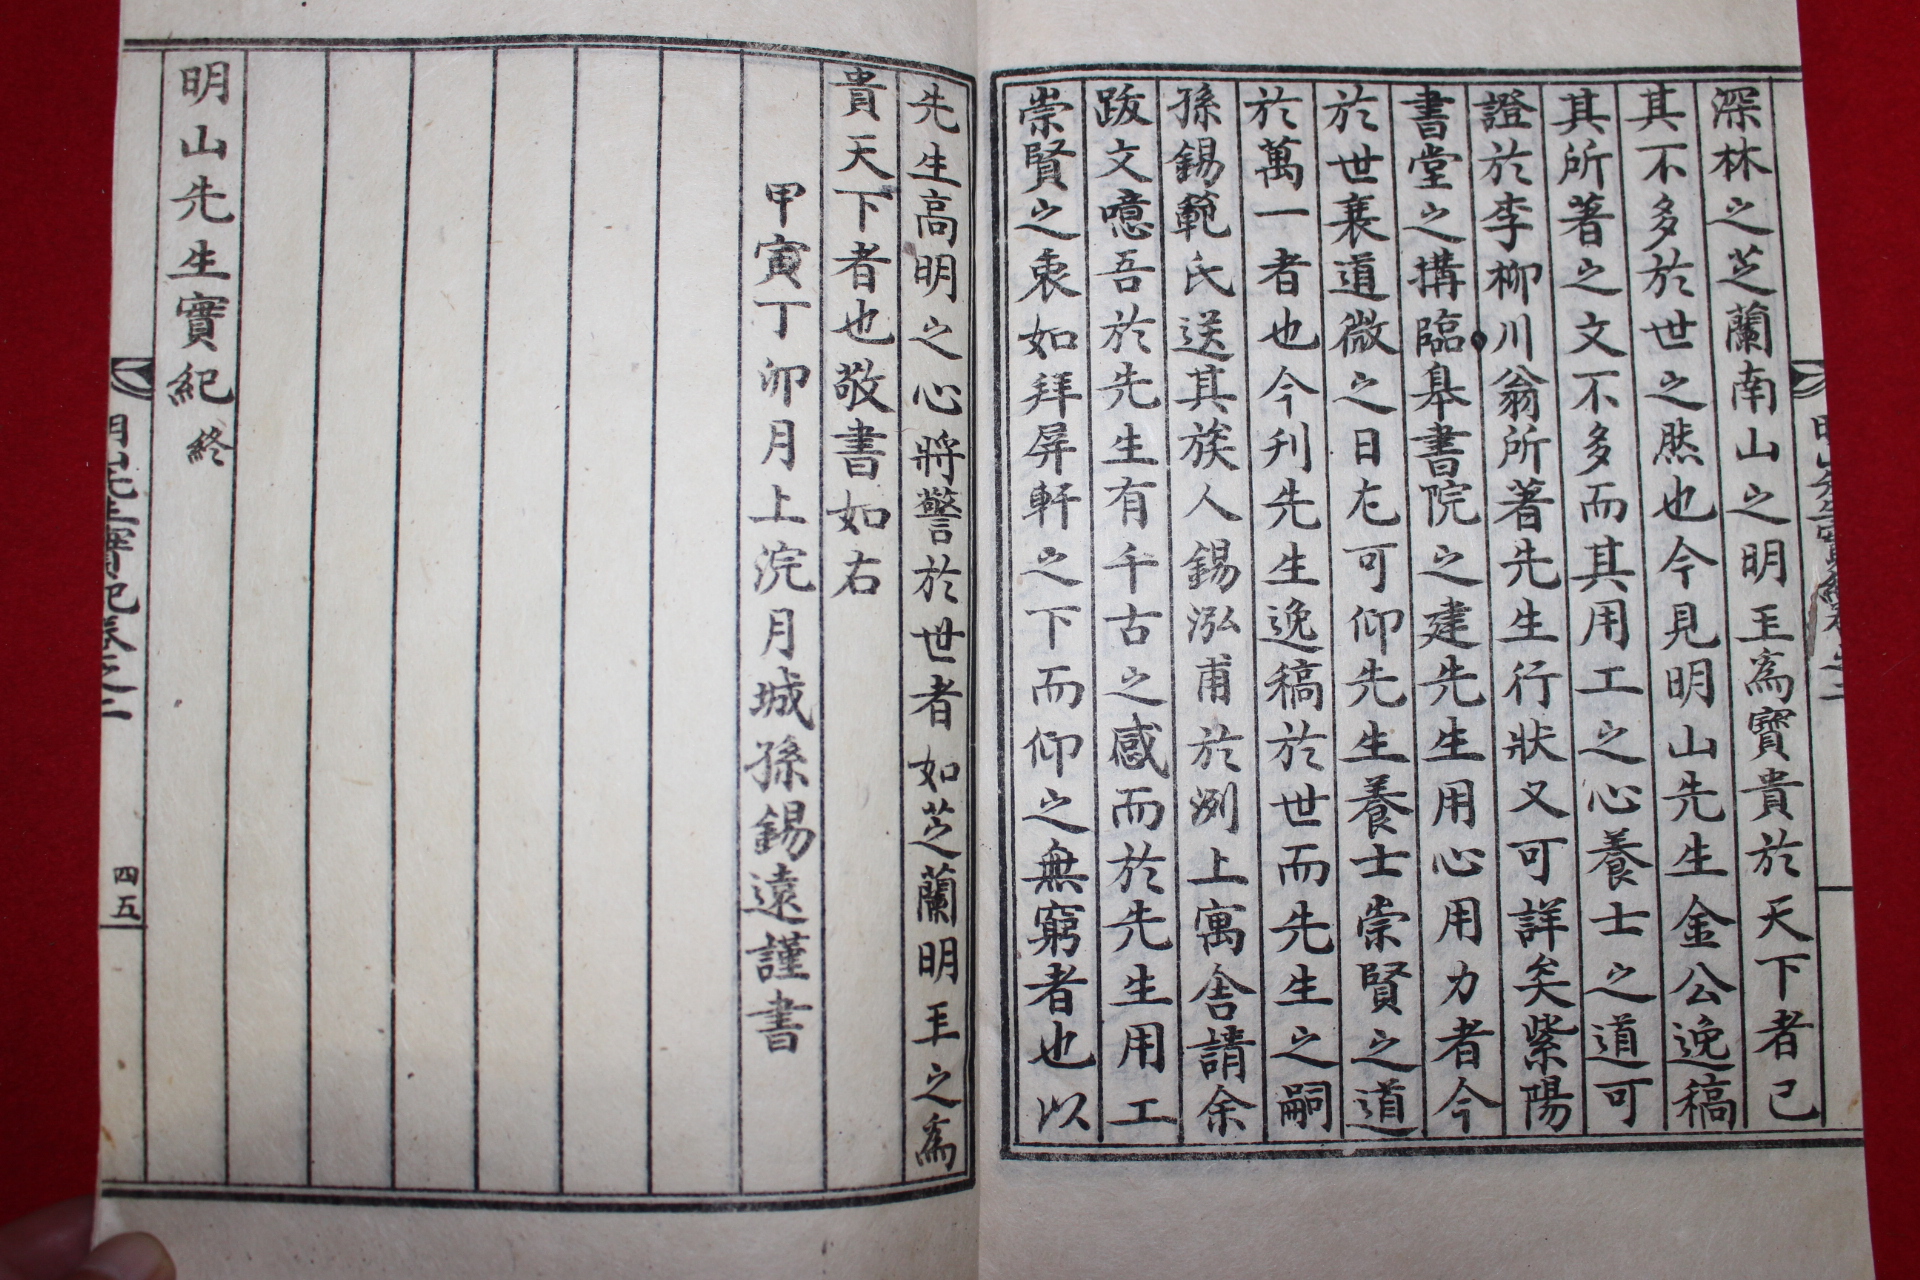 深林之芝蘭南山之明玉為寶貴於天下者已
其不多於世之然也今見明山先生金公逸稿
其所著之文不多而其用工之心養士之道可
證於李柳川翁所著先生行狀又可詳矣紫陽
書堂之搆臨皐書院之建先生用心用力者今
於世衰道微之日尤可仰先生養士崇賢之道
於萬一者也今刋先生逸稿於世而先生之嗣
孫錫範氏送其族人錫泓甫於洌上寓舍請余
跋文噫吾於先生有千古之感而於先生用工
崇賢之衷如拜屏軒之下而仰之無窮者也以
先生高明之心將警於世者如芝蘭明玉之為
貴天下者也敬書如右
甲寅丁卯月上浣月城孫錫遠謹書
明山先生實紀終
明山先生實紀卷之二
四五